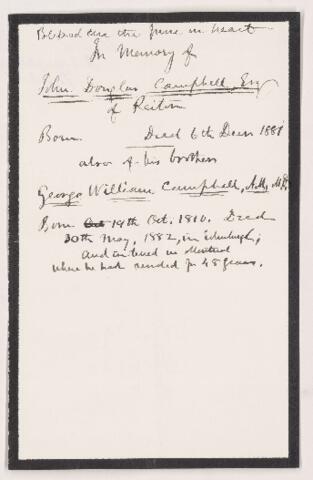 Blessed are the pure in heart
In Memory of
John Douglas Campbell, Esq
of
Born Died 6th Decr 1881
also of his brothers
George William Campbell, A.M., M.D.
Born 19th Oct. 1810. Died
30th May, 1882, in Edinburgh,
and interred in Montreal
where he had resided for 48 years.